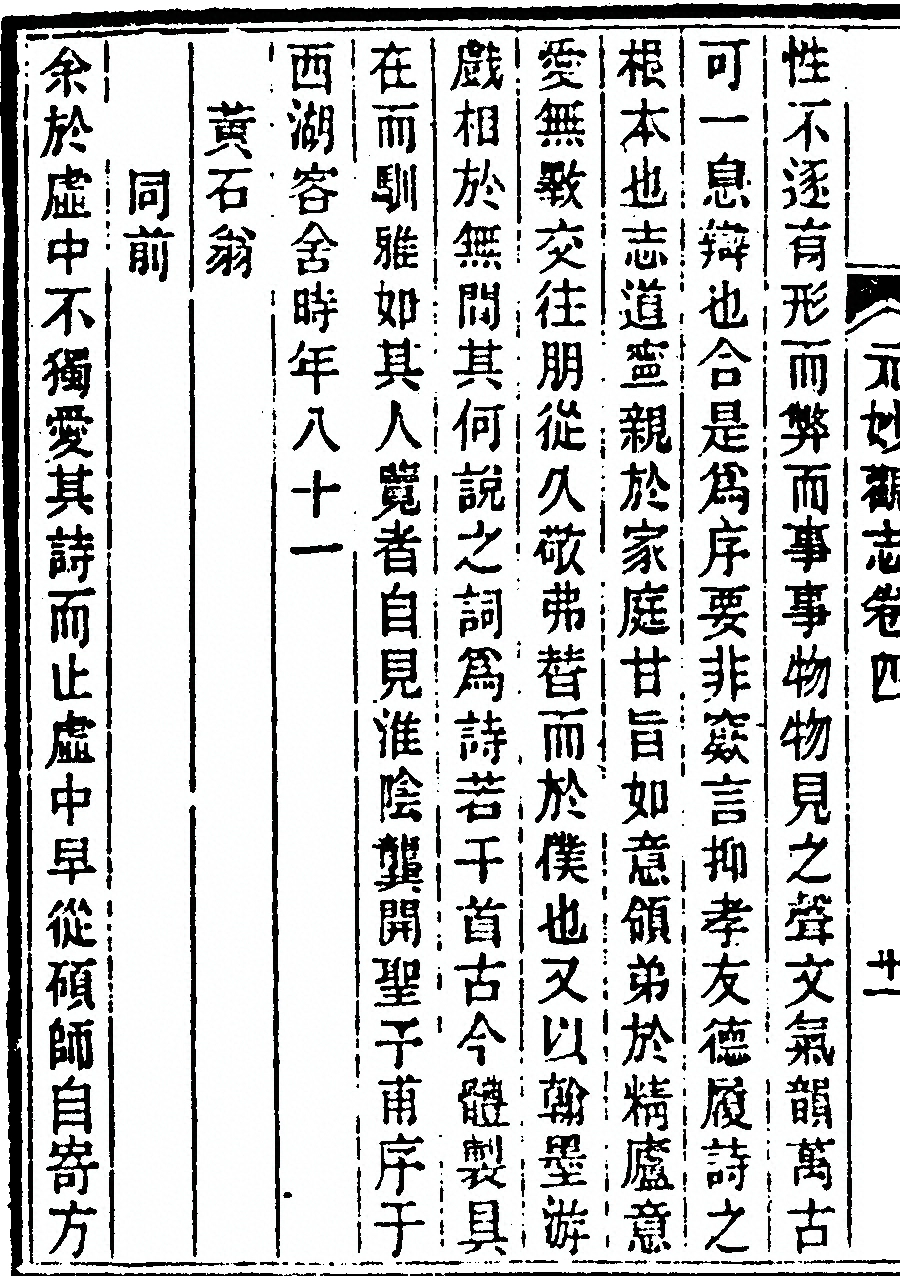 元妙觀志卷四
廿一
性不逐有形而弊而事事物物見之聲文氣韻萬古
可一息辯也合是爲序要非窾言抑孝友德履詩之
根本也志道寧親於家庭甘旨如意領弟於精廬意
愛無斁交往朋從久敬弗替而於僕也又以翰墨游
戲相於無間其何說之詞爲詩若干首古今體製具
在而馴雅如其人覽者自見淮陰龔開聖予甫序于
西湖容舍時年八十一
黃石翁
同前
余於虛中不獨愛其詩而止虛中早從碩師自寄方